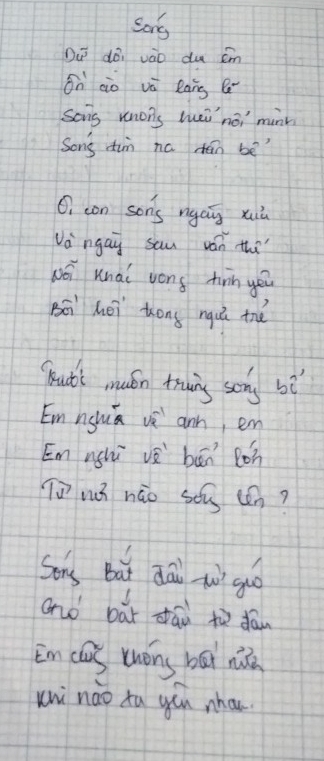 Sóng
Dữ dội vào dịu êm
Ồn ào và lặng lẽ
Sông không hiểu nổi mình
Sóng tìm ra tận bể
Ôi con sóng ngày xưa
Và ngày sau vẫn thế
Nỗi khát vọng tình yêu
Bồi hồi trong ngực trẻ
Trước muôn trùng sóng bể
Em nghĩ về anh, em
Em nghĩ về biển lớn
Từ nơi nào sóng lên?
Sóng Bắt đầu từ gió
Gió bắt đầu từ đâu
Em cũng không biết nữa
Khi nào ta yêu nhau.